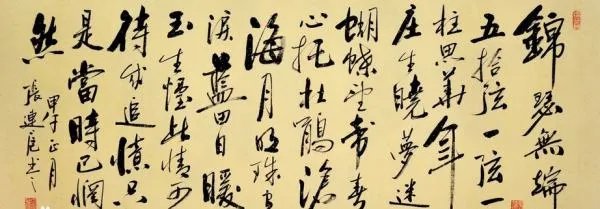 錦瑟無端
五拾弦一弦一
柱思華年
庄生曉夢迷
蝴蝶望帝春
心托杜鵑滄
海月明珠有
淚藍田日暖
玉生煙此情可
待成追憶只
是當時已惘
然
甲午正月
張